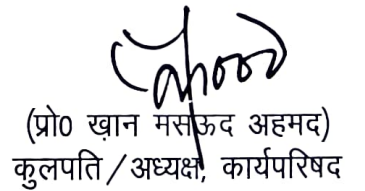 (प्रो० ख़ान मसऊद अहमद)
कुलपति / अध्यक्ष, कार्यपरिषद